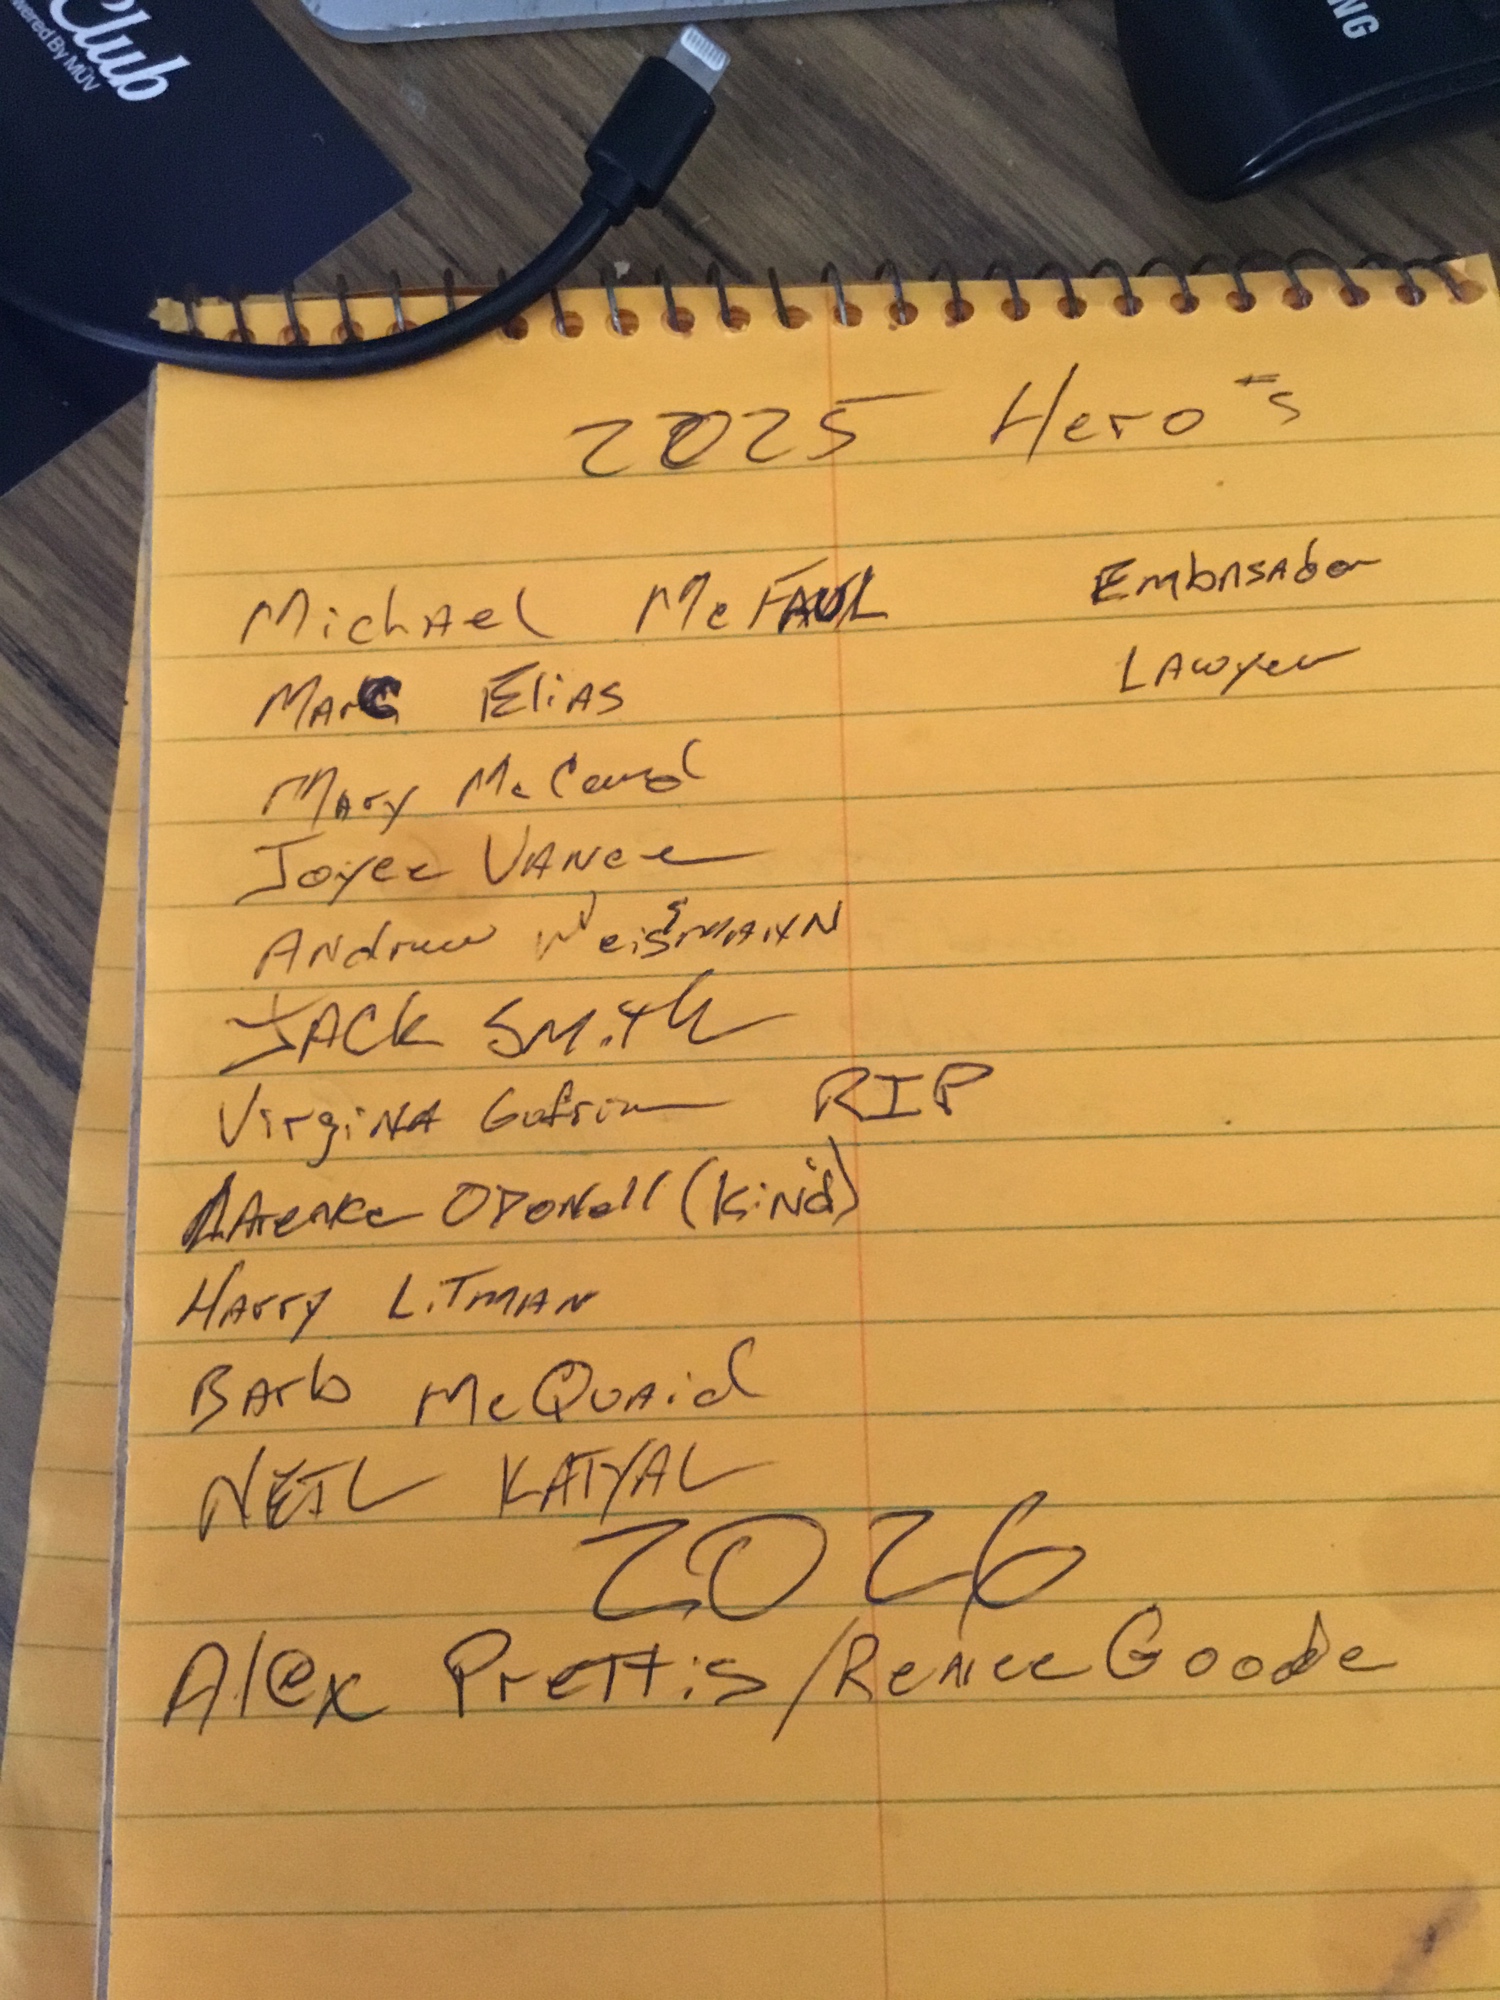 Club
wered By MÜV
NG
2025 Hero's
Michael McFAUL Embasador
Marc Elias Lawyer
Mary McCord
Joyce Vance
Andrew Weissmann
Jack Smith
Virgina Gufrin RIP
Larence ODonell (Kind)
Harry Litman
Barb McQuaid
NEIL KATYAL
2026
Alex Prettis/Renee Goode